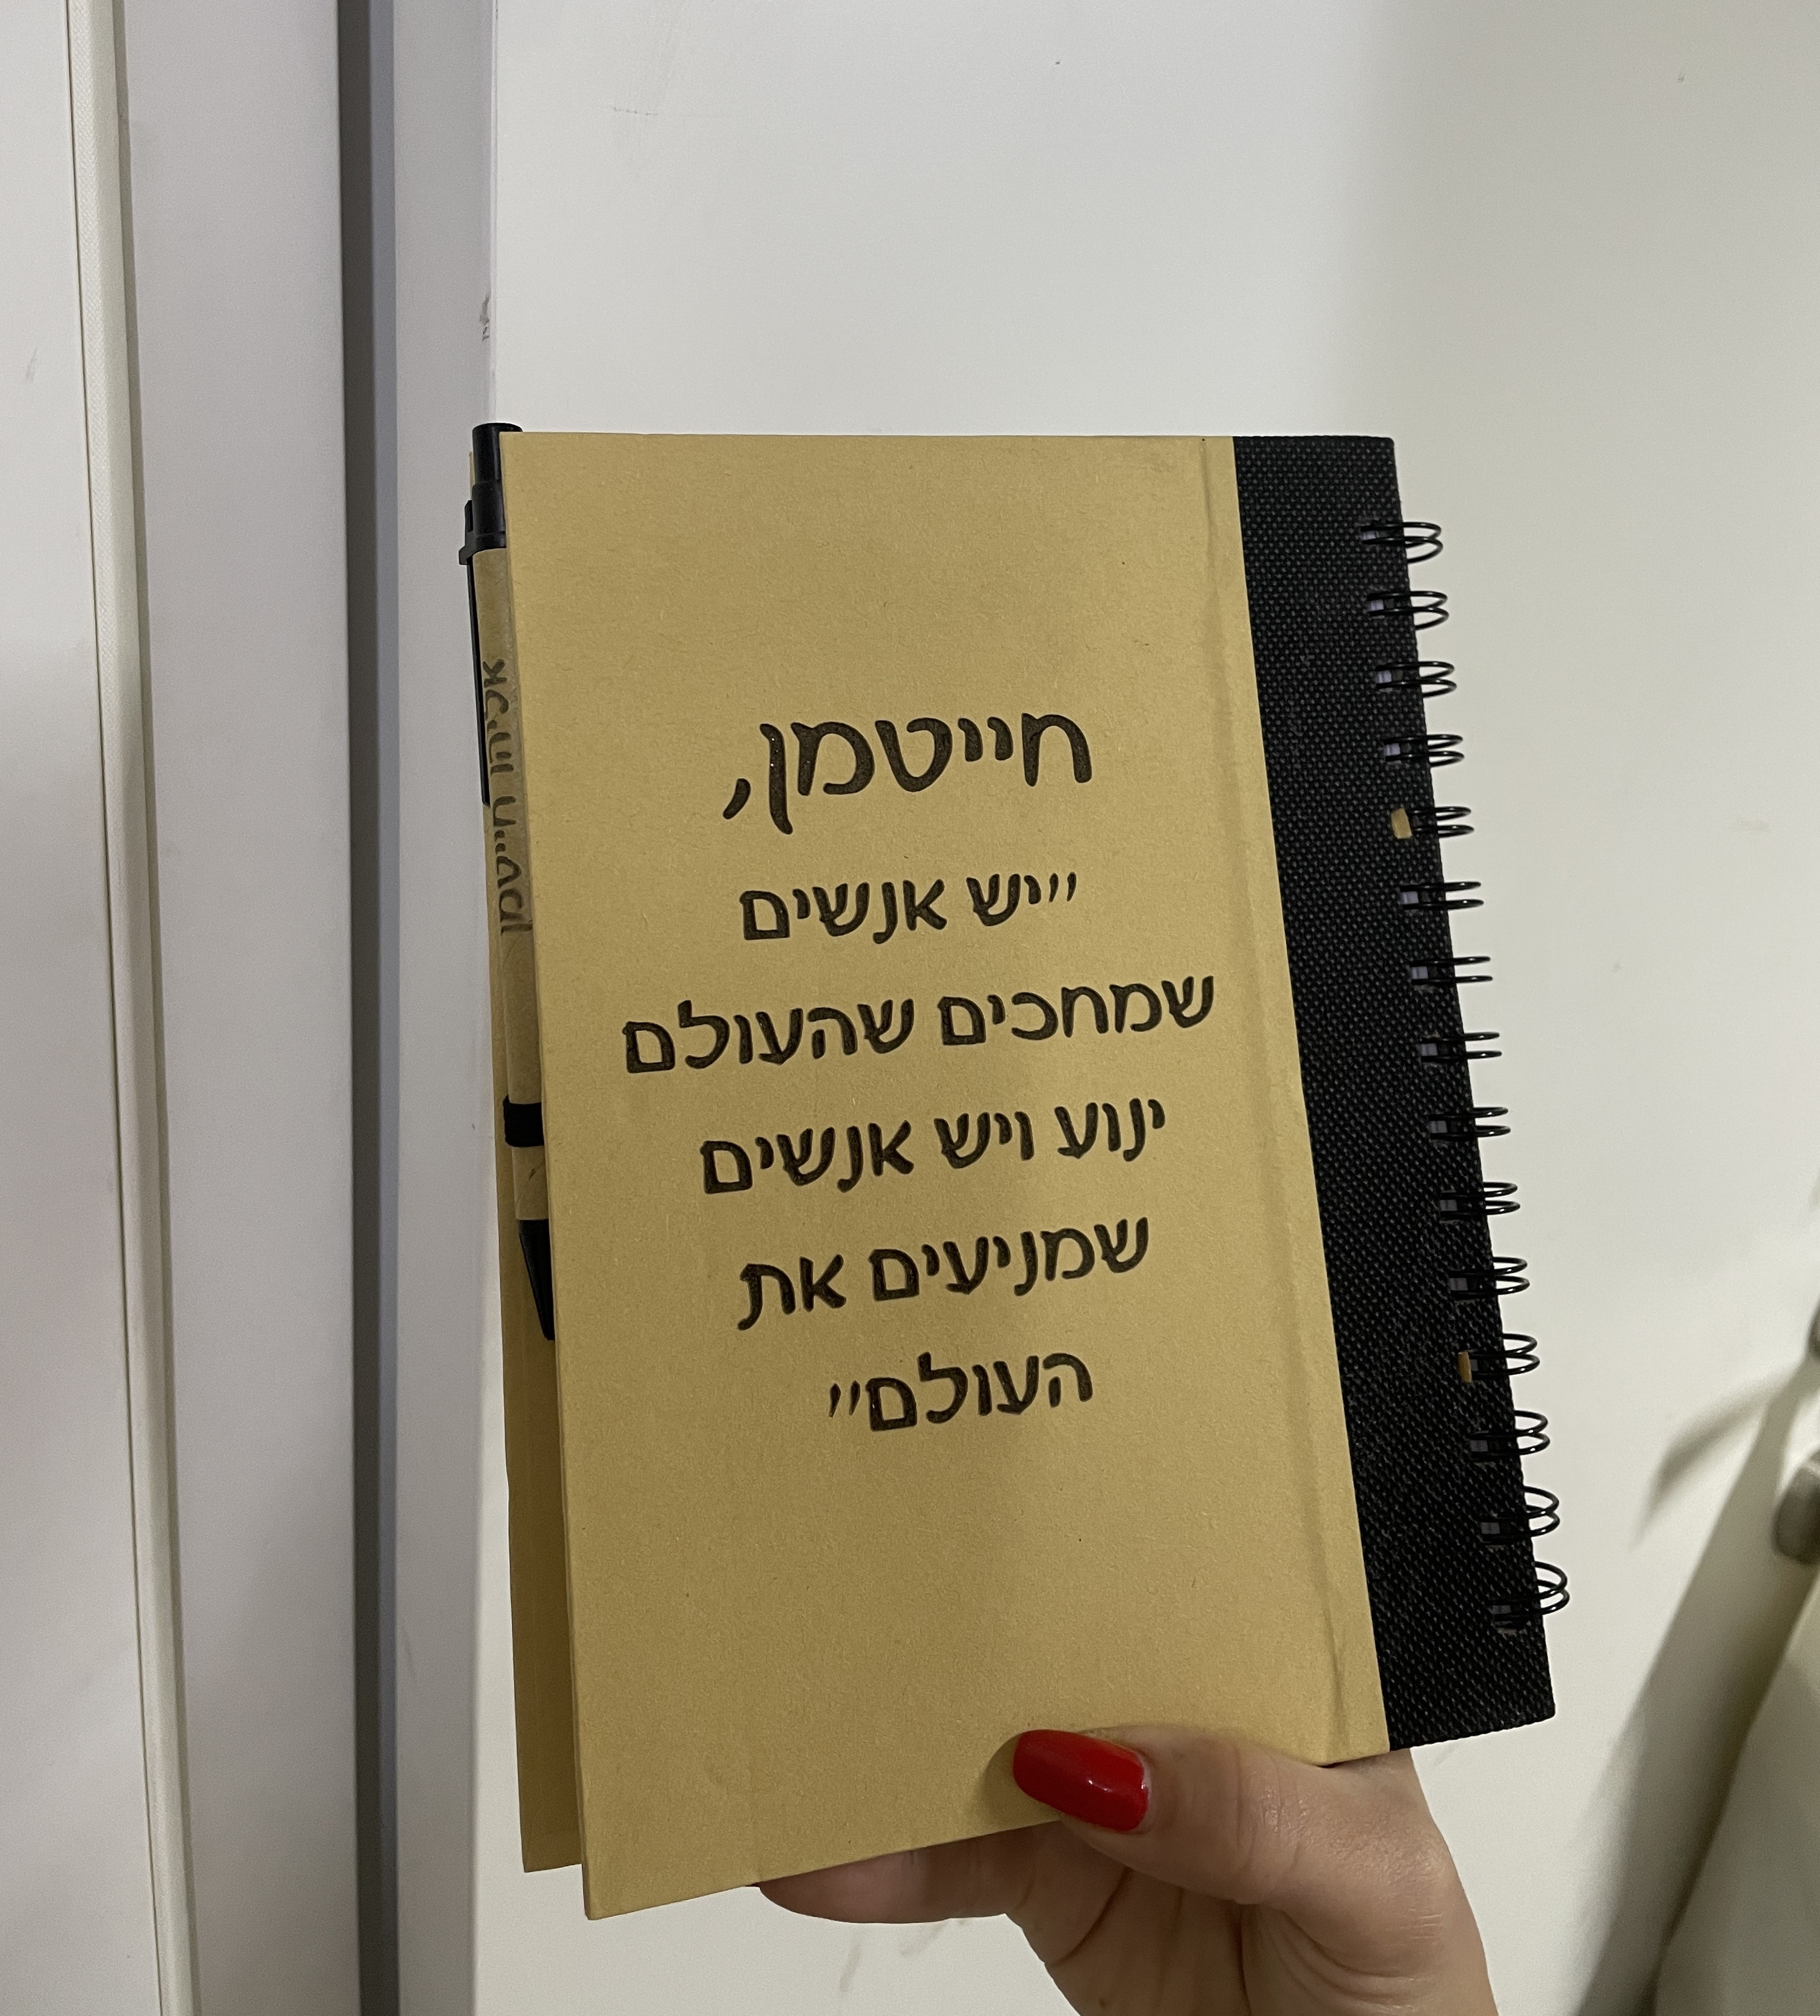 חייטמן,
״יש אנשים
שמחכים שהעולם
ינוע ויש אנשים
שמניעים את
העולם״